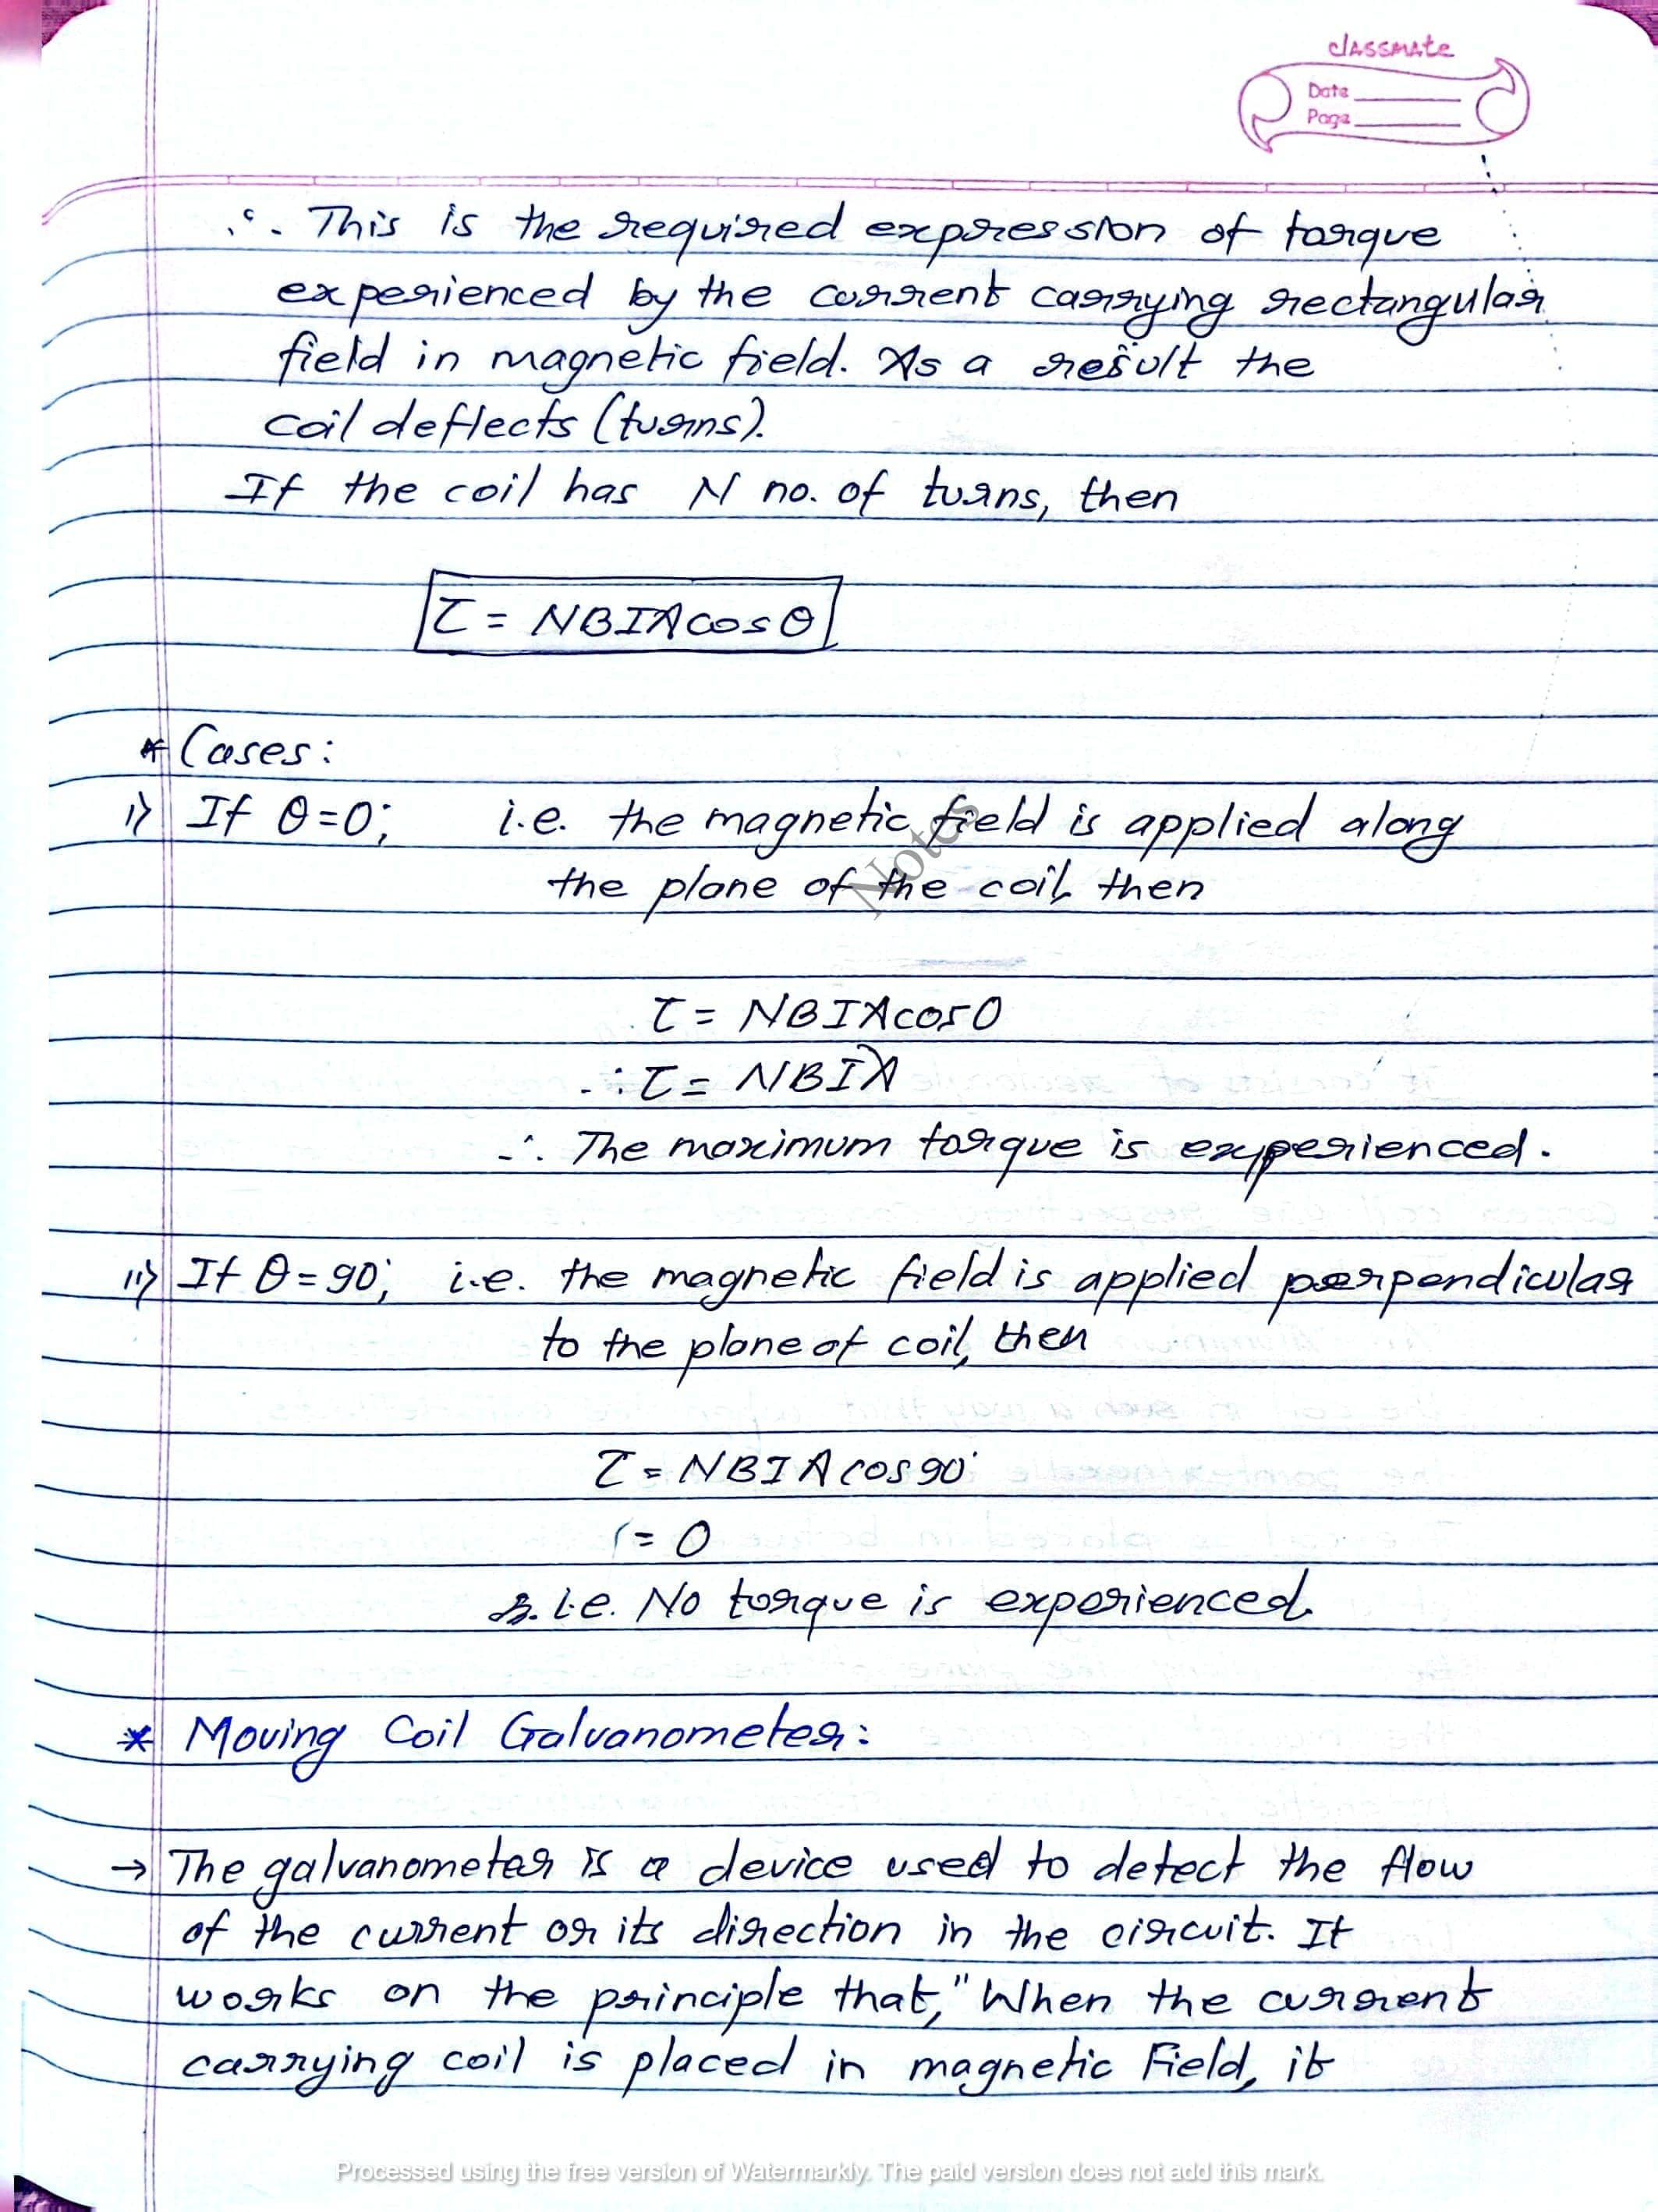 classmate
Date
Page
∴ This is the required expression of torque
experienced by the current carrying rectangular
field in magnetic field. As a result the
coil deflects (turns).
If the coil has N no. of turns, then
τ = NBIAcosθ
* Cases:
i) If θ=0°, i.e. the magnetic field is applied along
the plane of the coil, then
Notes
τ = NBIAcos0
∴ τ = NBIA
∴ The maximum torque is experienced.
ii) If θ=90°, i.e. the magnetic field is applied perpendicular
to the plane of coil, then
τ = NBIAcos90°
= 0
i.e. No torque is experienced.
* Moving Coil Galvanometer:
→ The galvanometer is a device used to detect the flow
of the current or its direction in the circuit. It
works on the principle that, "When the current
carrying coil is placed in magnetic Field, it
Processed using the free version of Watermarkly. The paid version does not add this mark.